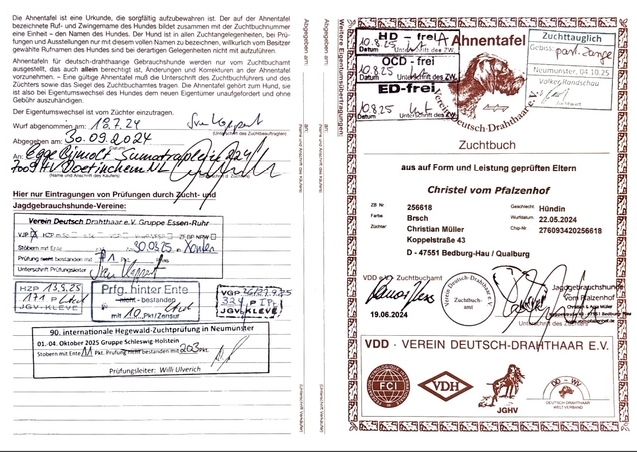 Die Ahnentafel ist eine Urkunde, die sorgfältig aufzubewahren ist. Der auf der Ahnentafel
bezeichnete Ruf- und Zwingername des Hundes bildet zusammen mit der Zuchtbuchnummer
eine Einheit – den Namen des Hundes. Der Hund ist in allen Zuchtangelegenheiten, bei Prü-
fungen und Ausstellungen nur mit diesem vollen Namen zu bezeichnen, willkürlich vom Besitzer
gewählte Rufnamen des Hundes sind bei derartigen Gelegenheiten nicht mit aufzuführen.
Ahnentafeln für deutsch-drahthaarige Gebrauchshunde werden nur vom Zuchtbuchamt
ausgestellt, das auch allein berechtigt ist, Änderungen und Korrekturen an der Ahnentafel
vorzunehmen. – Eine gültige Ahnentafel muß die Unterschrift des Zuchtbuchführers und des
Züchters sowie das Siegel des Zuchtbuchamtes tragen. Die Ahnentafel gehört zum Hund, sie
ist also bei Eigentumswechsel des Hundes dem neuen Eigentümer unaufgefordert und ohne
Gebühr auszuhändigen.
Der Eigentumswechsel ist vom Züchter einzutragen.
Wurf abgenommen am:
(Unterschrift des Zuchtbeauftragten)
Abgegeben am: 30.09.2024
An: Egge Bijmolt
7009 HV Doetinchem NL
(Name und Anschrift des Käufers)
Hier nur Eintragungen von Prüfungen durch Zucht- und
Jagdgebrauchshunde-Vereine:
Verein Deutsch Drahthaar e.V. Gruppe Essen-Ruhr
VJP
Stöbern mit Ente 30.03.25 Xanten
Prüfung nicht bestanden mit
Unterschrift Prüfungsleiter:
HZP 13.9.25
JGV-KLEVE
Prfg. hinter Ente
nicht - bestanden
mit 10 Pkt/Zensur
VGP
JGV-KLEVE
90. internationale Hegewald-Zuchtprüfung in Neumünster
01.-04. Oktober 2025 Gruppe Schleswig Holstein
Stöbern mit Ente 11 Pkt. Prüfung nicht bestanden mit 203 Pkt.
Prüfungsleiter: Willi Ulverich
Weitere Eigentumsübertragungen
Abgegeben am:
An:
(Name und Anschrift des Käufers)
(Unterschrift Verkäufer)
Abgegeben am:
An:
(Name und Anschrift des Käufers)
(Unterschrift Verkäufer)
HD - frei
10.8.25
Datum Unterschrift des ZW.
OCD - frei
10.8.25
Datum Unterschrift des ZW.
ED-frei
10.8.25
Datum Unterschrift des ZW.
Ahnentafel
Verein Deutsch-Drahthaar e.V.
Zuchttauglich
Gebiss
Neumünster, 04.10.25
Volkey, Randschau
Zuchtbuch
aus auf Form und Leistung geprüften Eltern
Christel vom Pfalzenhof
ZB Nr 256618
Geschlecht: Hündin
Farbe Brsch
Wurfdatum: 22.05.2024
Züchter Christian Müller
Chip-Nr: 276093420256618
Koppelstraße 43
D - 47551 Bedburg-Hau / Qualburg
VDD e.V. Zuchtbuchamt
Verein Deutsch-Drahthaar e.V.
Zuchtbuch-
amt
Jagdgebrauchshunde
vom Pfalzenhof
19.06.2024
Unterschrift des Züchters
VDD · VEREIN DEUTSCH-DRAHTHAAR E.V.
FCI
VDH
JGHV
DD - WV
DEUTSCH-DRAHTHAAR
WELT-VERBAND